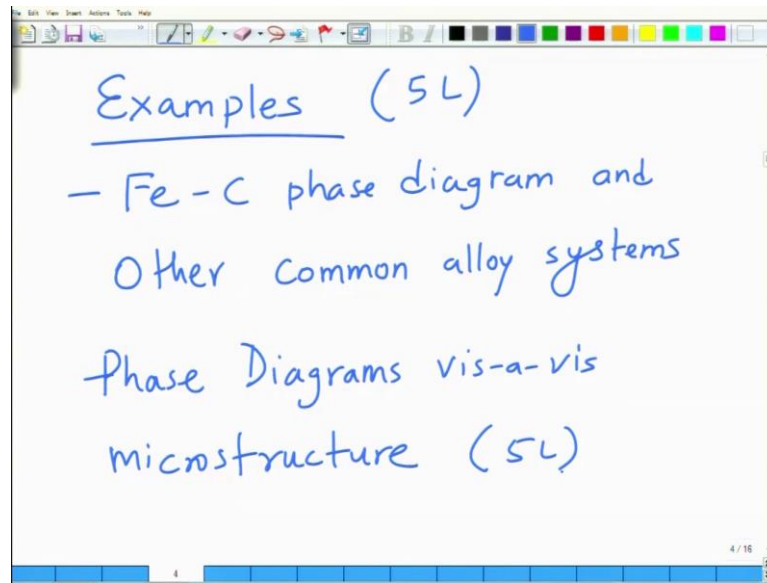 File Edit View Insert Actions Tools Help
B I
Examples (5L)
- Fe-C phase diagram and
Other common alloy systems
- Phase Diagrams vis-a-vis
microstructure (5L)
4 / 16
4